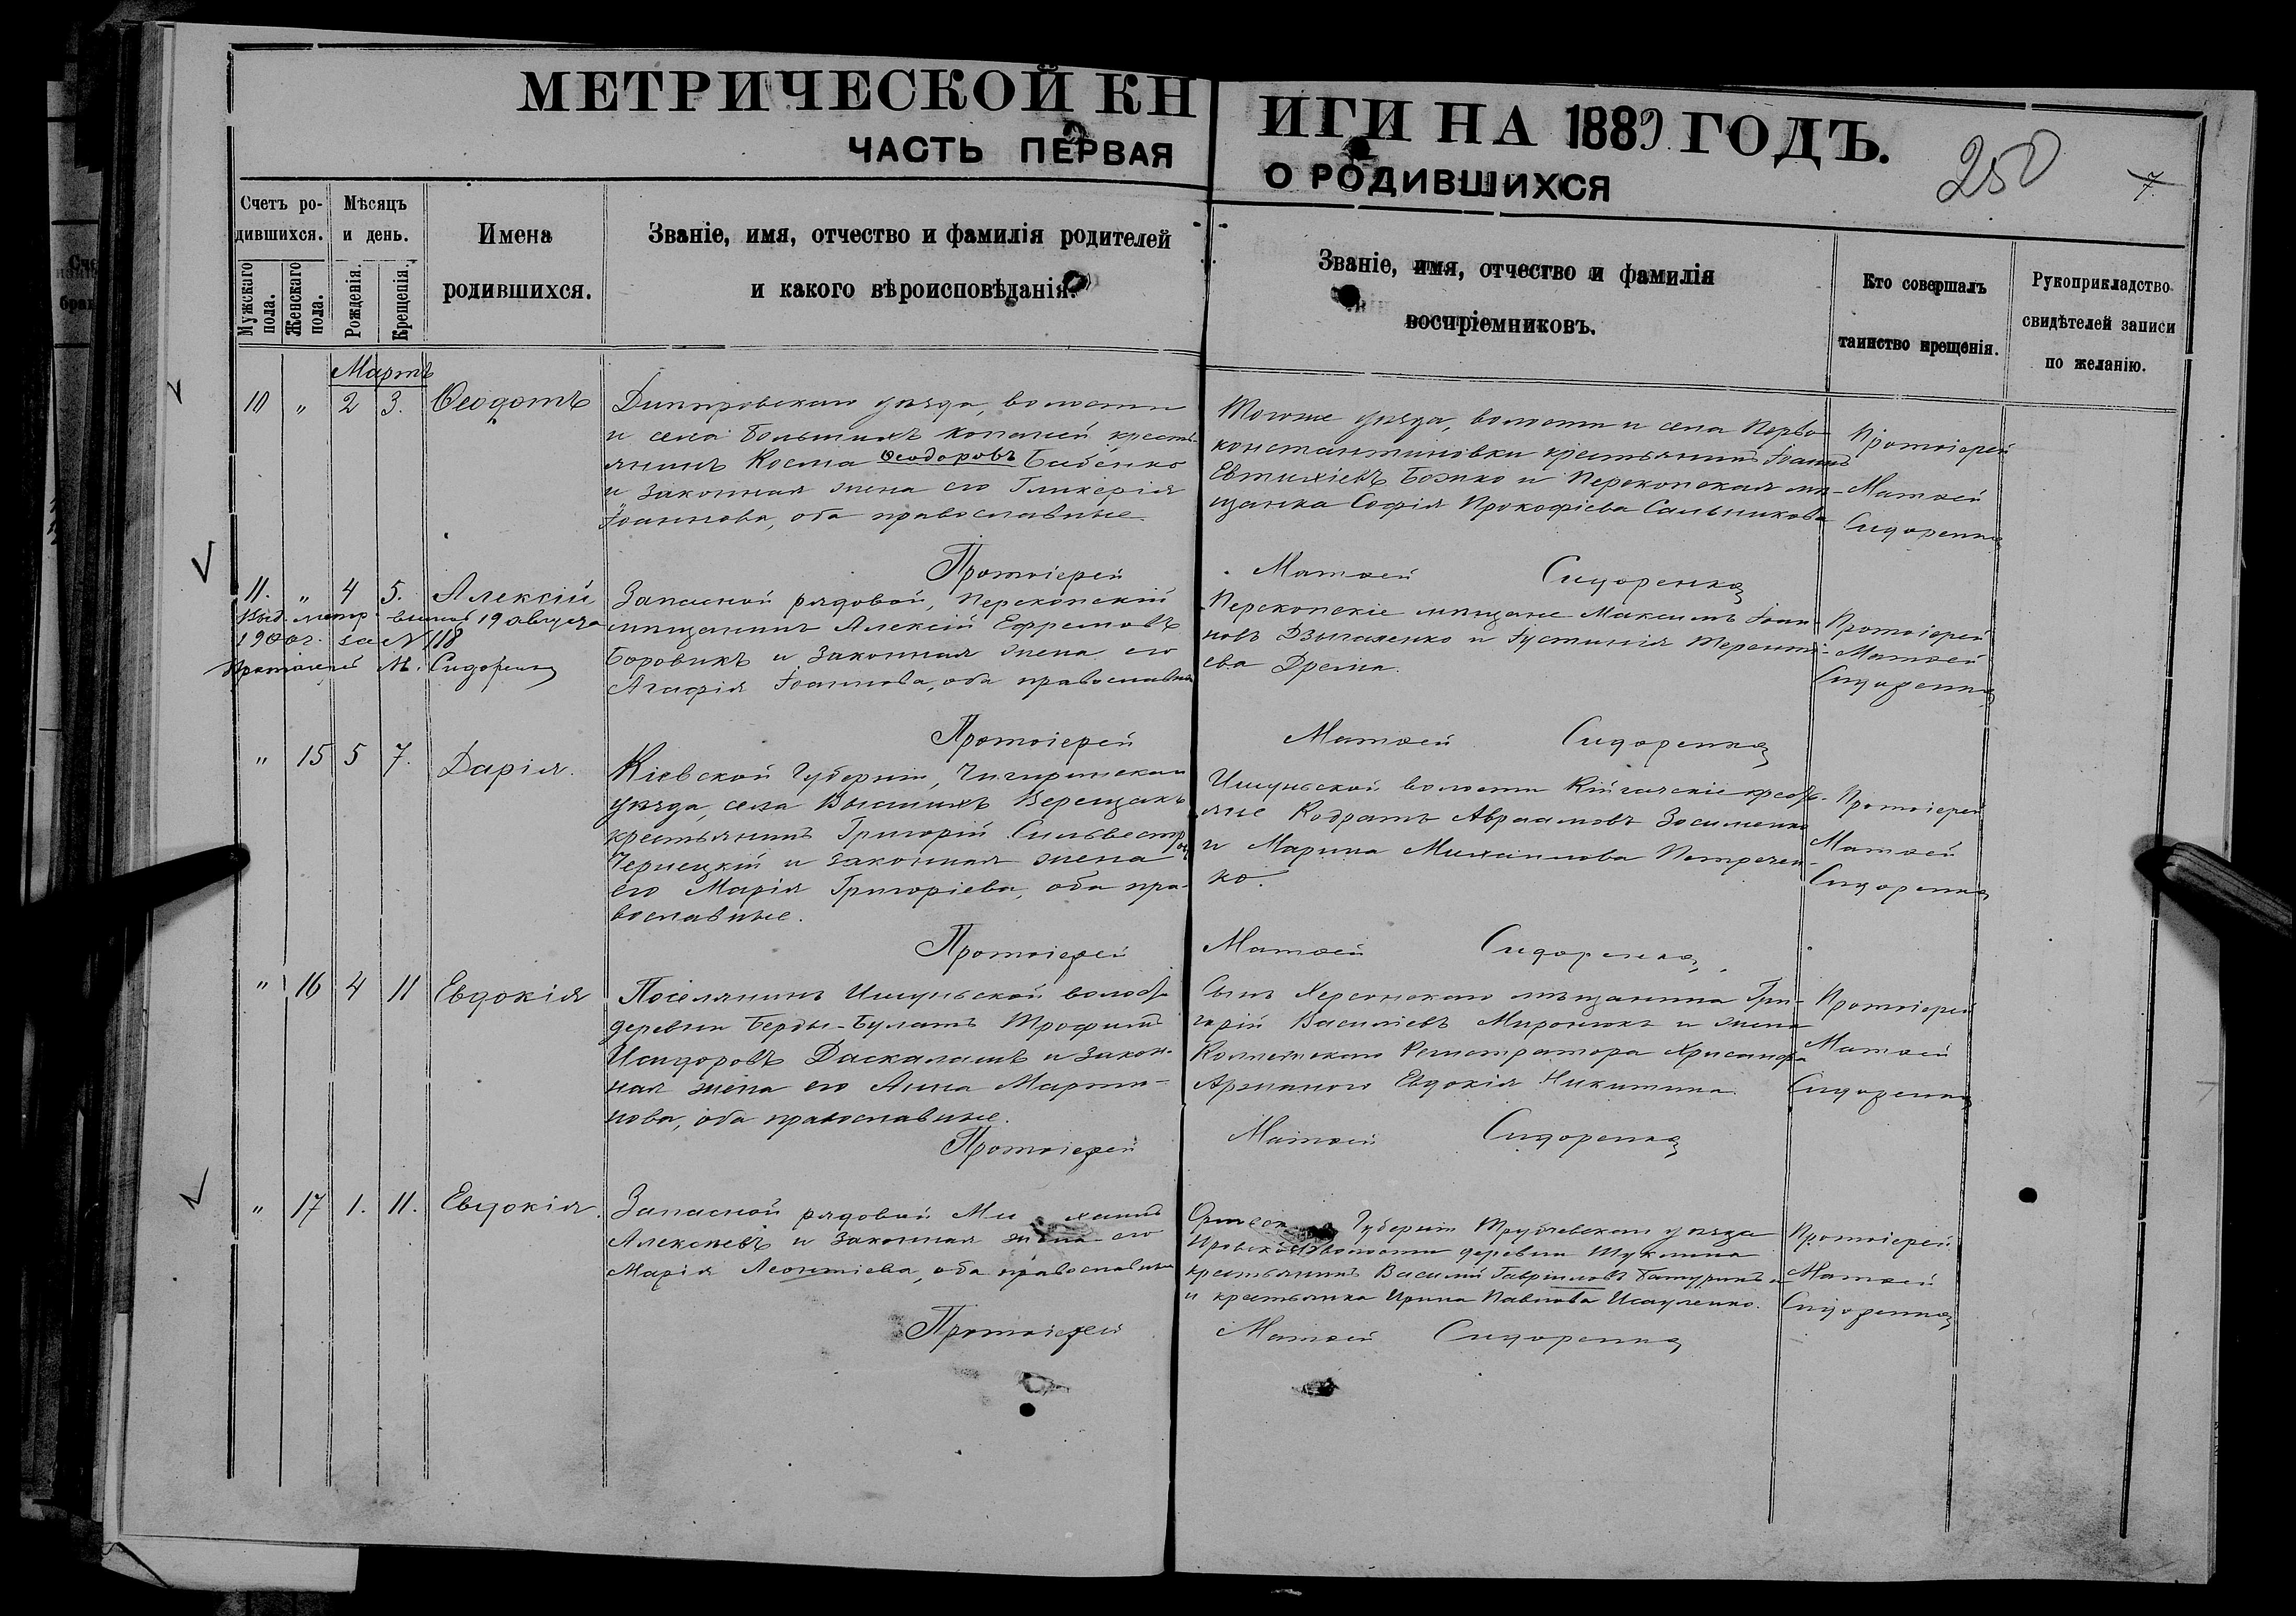 МЕТРИЧЕСКОЙ КНИГИ НА 1889 ГОДЪ.
ЧАСТЬ ПЕРВАЯ О РОДИВШИХСЯ
250
7.
Счетъ ро-
дившихся.
Мужскаго пола.
Женскаго пола.
Мѣсяцъ
и день.
Рожденія.
Крещенія.
Имена
родившихся.
Званіе, имя, отчество и фамилія родителей
и какого вѣроисповѣданія.
Званіе, имя, отчество и фамилія
воспріемниковъ.
Кто совершалъ
таинство крещенія.
Рукоприкладство
свидѣтелей записи
по желанію.
Мартъ
10 " 2 3. Ѳеодотъ
Днепровскаго уѣзда, волости
и села Большихъ Копаней кресть-
янинъ Косма Ѳеодоровъ Бабенко
и законная жена его Гликерія
Іоаннова, оба православные.
Тогоже уѣзда, волости и села Перво-
константиновки крестьянинъ Іоаннъ
Евтихіевъ Божко и Перекопская мѣ-
щанка Софія Прокофіева Сальникова
Протоіерей
Матѳей
Сидоренко
Протоіерей Матѳей Сидоренко
11. " 4 5. Алексій
Выд. метр. выпись 19 августа
1900 г. за № 118
Протоіерей М. Сидоренко
Запасной рядовой, Перекопскій
мѣщанинъ Алексій Ефремовъ
Боровикъ и законная жена его
Агафія Іоаннова, оба православные
Перекопскіе мѣщане Максимъ Іоан-
новъ Дзыгаленко и Іустинія Теренті-
ева Дрега.
Протоіерей
Матѳей
Сидоренко
Протоіерей Матѳей Сидоренко
" 15 5 7. Дарія.
Кіевской Губерніи, Чигиринскаго
уѣзда, села Высшихъ Верещакъ
крестьянинъ Григорій Сильвестровъ
Чернецкій и законная жена
его Марія Григоріева, оба пра-
вославные.
Ишуньской волости крестья-
яне Кодратъ Авраамовъ Зосименко
и Марина Михаилова Петречен-
ко.
Протоіерей
Матѳей
Сидоренко
Протоіерей Матѳей Сидоренко
" 16 4 11 Евдокія
Поселянинъ Ишуньской волости
деревни Берды-Булатъ Трофимъ
Исидоровъ Даскаламъ и закон-
ная жена его Анна Марти-
нова, оба православные.
Сынъ Херсонскаго мѣщанина Гри-
горій Василіевъ Миронюкъ и жена
Коллежскаго Регистратора Хрисанфа
Евдокія Никитина
Протоіерей
Матѳей
Сидоренко
Протоіерей Матѳей Сидоренко
" 17 1. 11. Евдокія.
Запасной рядовой Михаилъ
Алексѣевъ и законная жена его
Марія Леонтіева, оба православные
Орловской Губерніи Трубчевскаго уѣзда
волости деревни Шуклина
крестьянинъ Василій Гавриловъ Батуринъ
и крестьянка Ирина Павлова Исауленко.
Протоіерей
Матѳей
Сидоренко
Протоіерей Матѳей Сидоренко